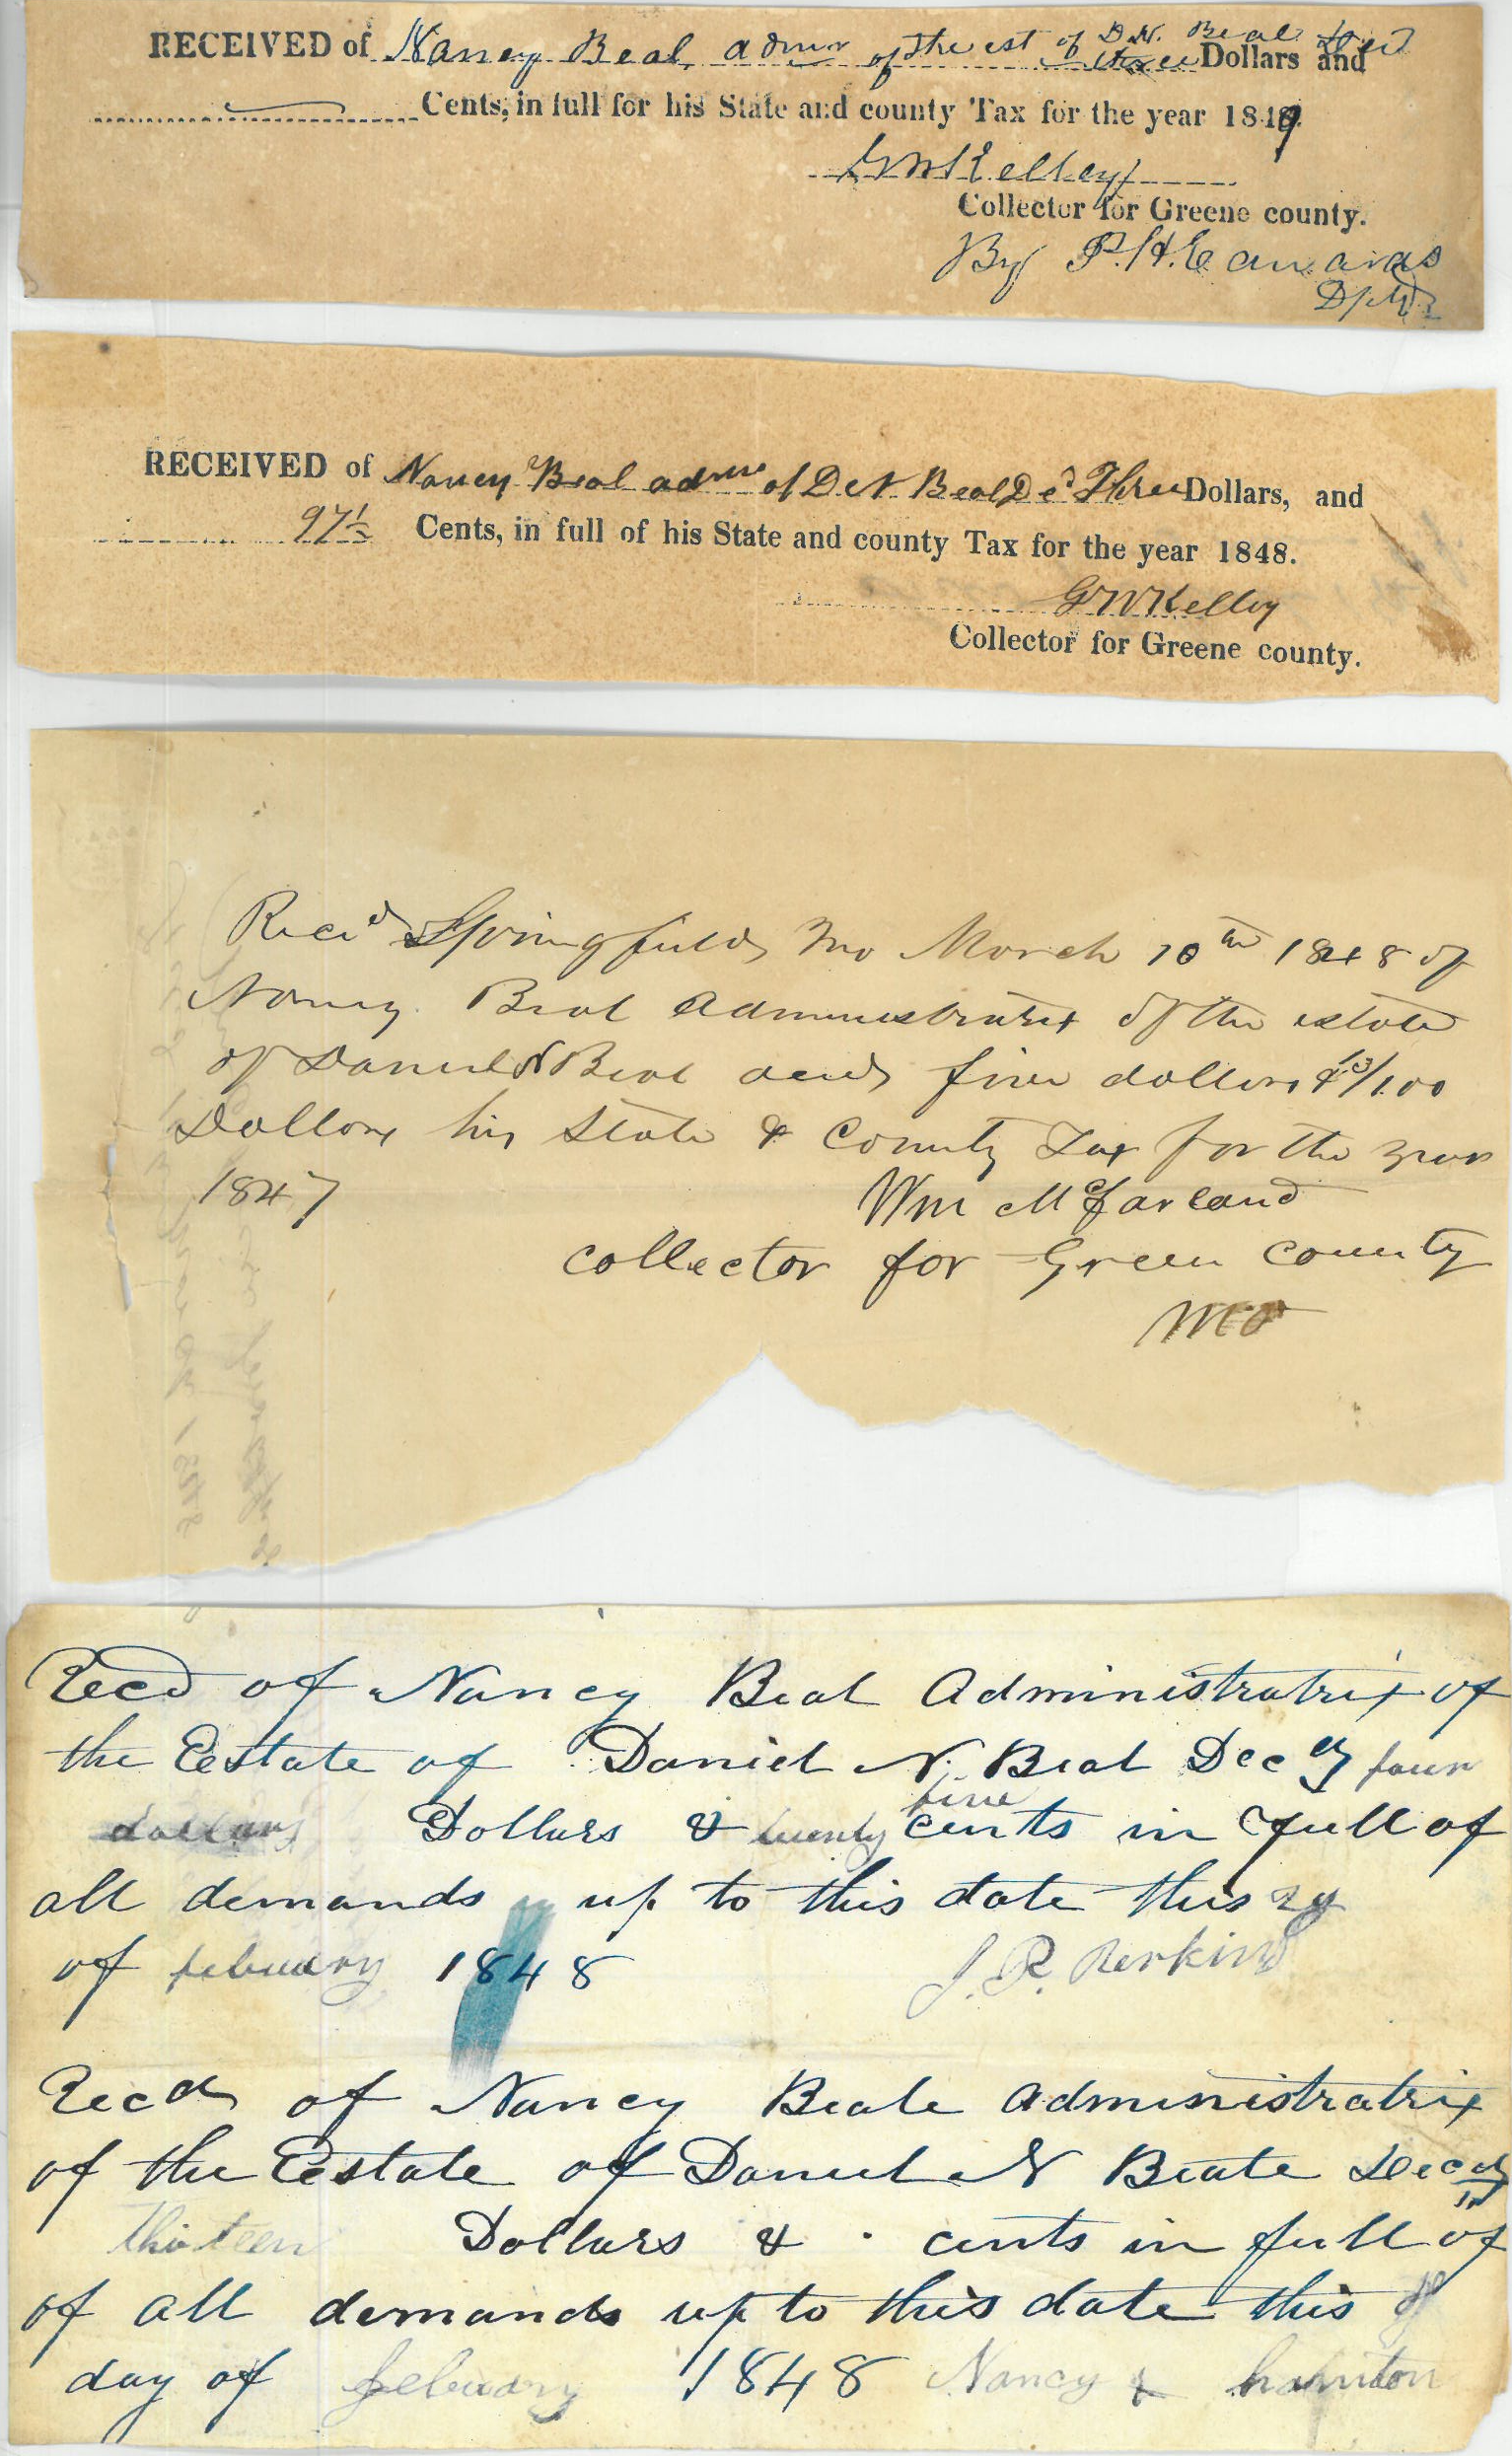 RECEIVED of Nancy Beal admr of the est of D. N. Beal Decd three Dollars and
Cents, in full for his State and county Tax for the year 1849
G W Kelley
Collector for Greene county.
By P. H. Edwards
RECEIVED of Nancy Beal admrx of D N Beal Decd Three Dollars, and
97½ Cents, in full of his State and county Tax for the year 1848.
G W Kelley
Collector for Greene county.
Recd Springfield Mo March 10th 1848 of
Nancy Beal Administratrix of the estate
of Daniel N Beal decd five dollars & 13/100
Dollars his State & County Tax for the year
1847
Wm McFarland
collector for Green county
Mo
Recd of Nancy Beal Administratrix of
the Eestate of Daniel N. Beal Decd four
dollars Dollars & twenty five cents in full of
all demands up to this date this
of febuary 1848 J. R. Perkins
Recd of Nancy Beale administratrix
of the Eestate of Daniel N Beale Decd
thirteen Dollars & cents in full of
of all demands up to this date this
day of febuary 1848 Nancy